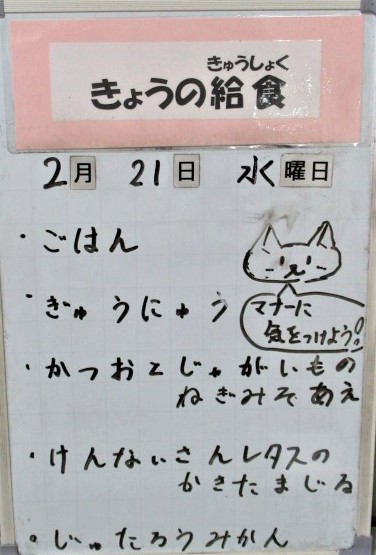 きゅうしょく
きょうの給食
2月 21日 水曜日
・ごはん
・ぎゅうにゅう
マナーに
気をつけよう!!
・かつおとじゃがいもの
ねぎみそあえ
・けんないさんレタスの
かきたまじる
・じゅたろうみかん